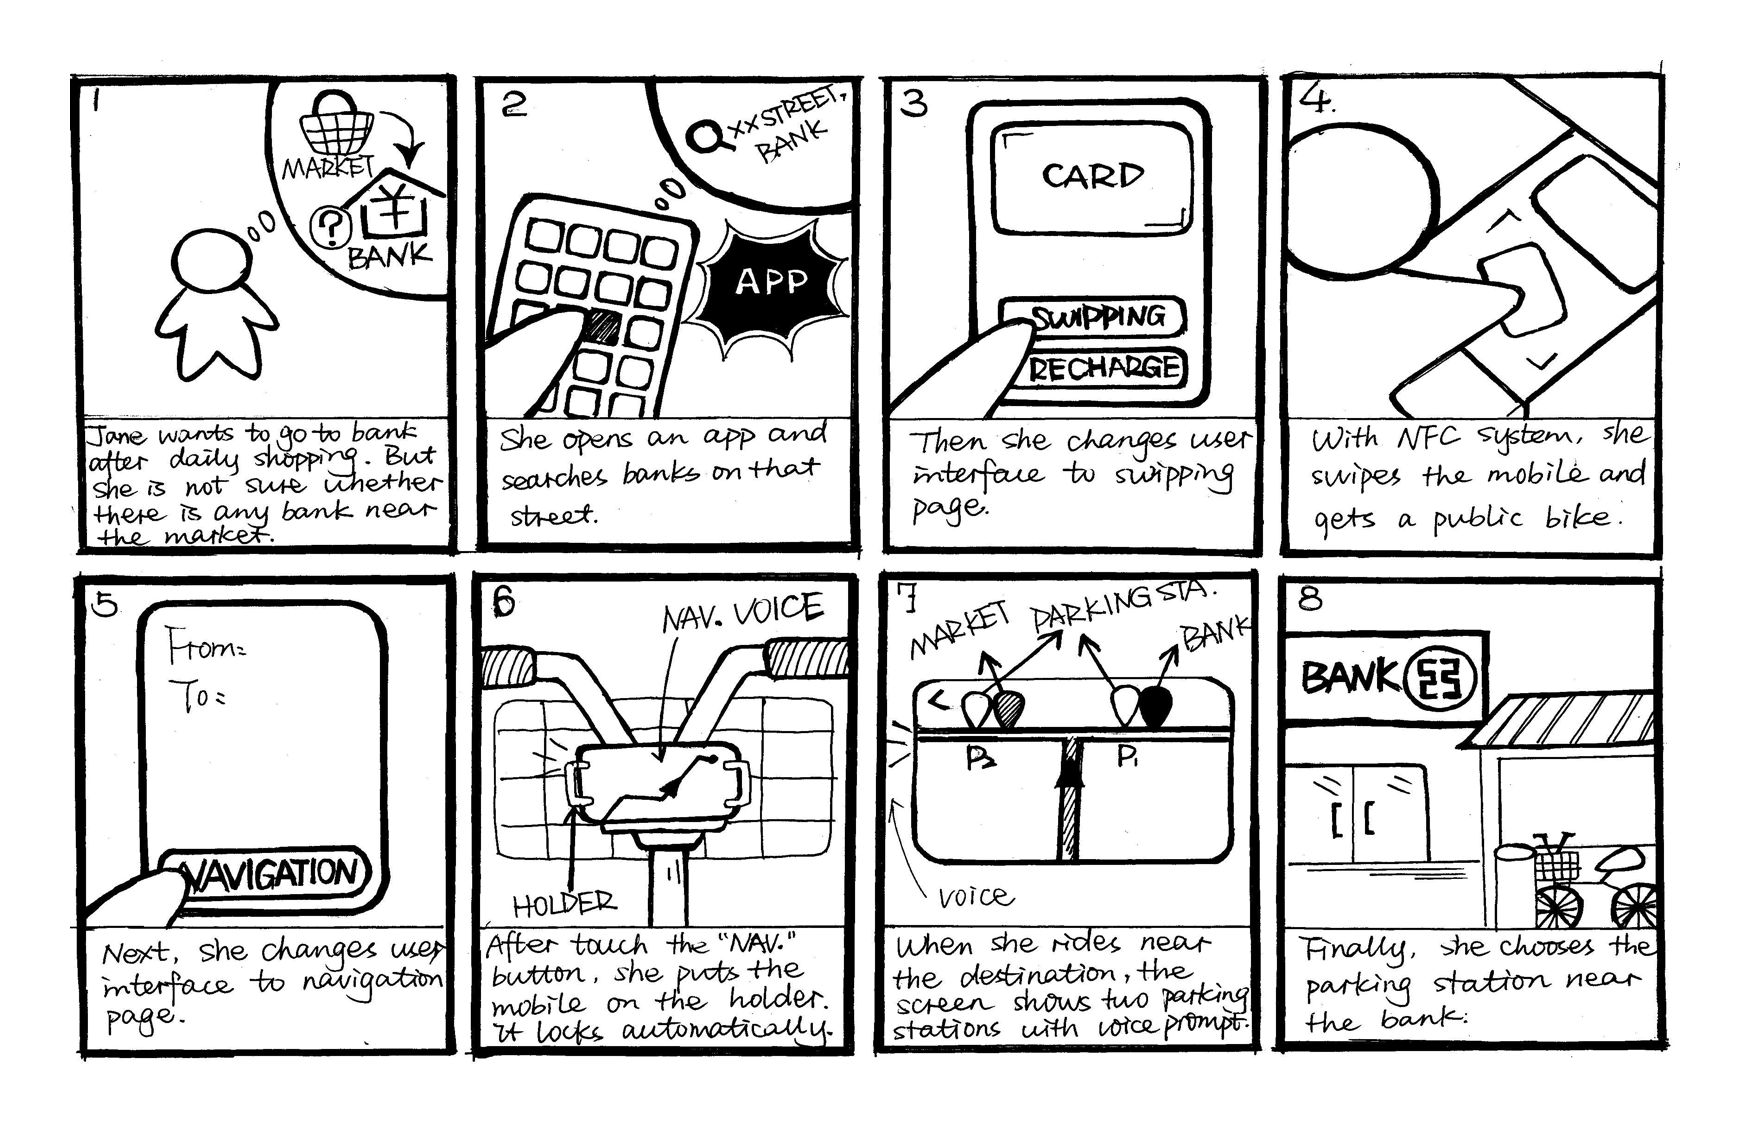 1
MARKET
¥
?
BANK
Jane wants to go to bank
after daily shopping. But
she is not sure whether
there is any bank near
the market.
2
XX STREET,
BANK
APP
She opens an app and
searches banks on that
street.
3
CARD
SWIPPING
RECHARGE
Then she changes user
interface to swipping
page.
4.
With NFC system, she
swipes the mobile and
gets a public bike.
5
From:
To:
NAVIGATION
Next, she changes user
interface to navigation
page.
6
NAV. VOICE
HOLDER
After touch the "NAV."
button, she puts the
mobile on the holder.
it locks automatically.
7
MARKET PARKING STA.
BANK
P2 P1
voice
When she rides near
the destination, the
screen shows two parking
stations with voice prompt.
8
BANK
Finally, she chooses the
parking station near
the bank.